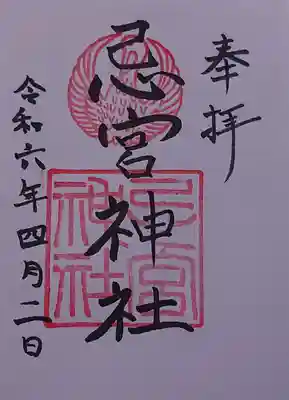 奉拝
忌宮神社
令和六年四月二日
忌宮神社